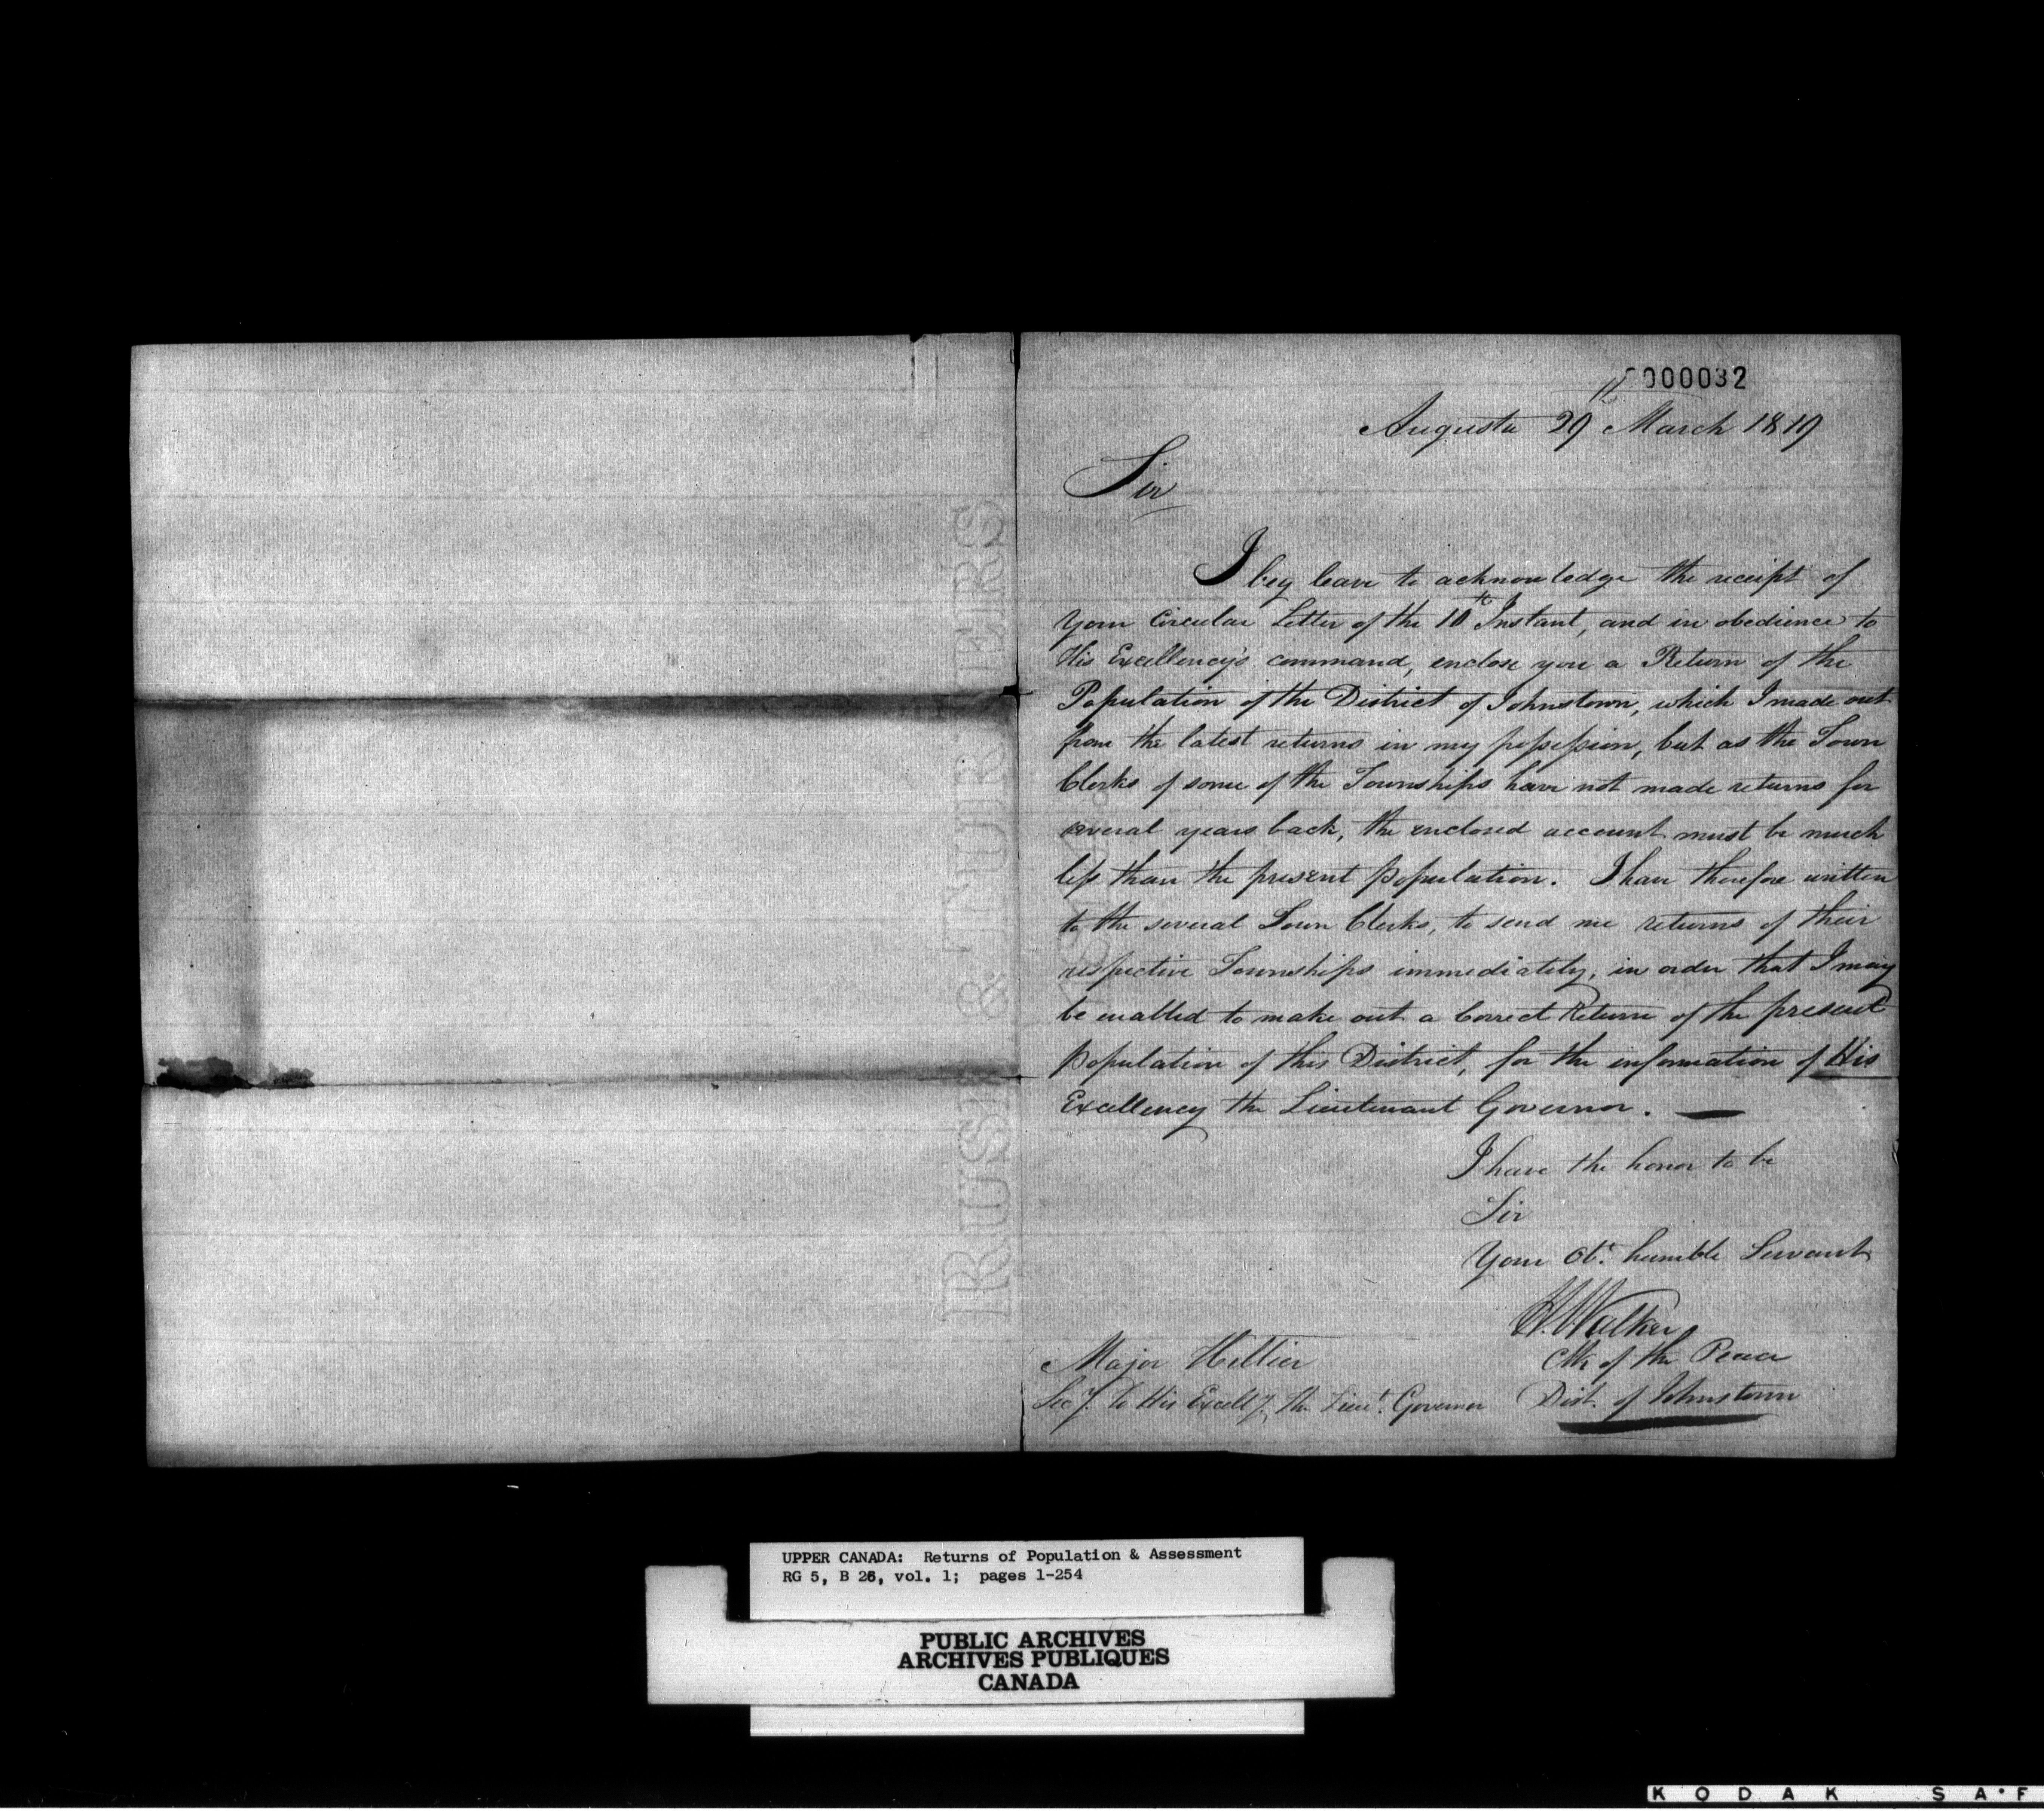 0000032
Augusta 29th March 1819
Sir
I beg leave to acknowledge the receipt of
your Circular Letter of the 10th Instant, and in obedience to
His Excellency's command, enclose you a Return of the
Population of the District of Johnstown, which I made out
from the latest returns in my possession, but as the Town
Clerks of some of the Townships have not made returns for
several years back, the enclosed account must be much
less than the present population. I have therefore written
to the several Town Clerks, to send me returns of their
respective Townships immediately, in order that I may
be enabled to make out a Correct Return of the present
population of this District, for the information of His
Excellency the Lieutenant Governor. —
I have the honor to be
Sir
Your Obt. humble Servant
H. Walker
Clk of the Peace
Dist. of Johnstown
Major Hillier
Secy. To His Excelly. the Lieut. Governor
RUSE & TURNERS
UPPER CANADA: Returns of Population & Assessment
RG 5, B 26, vol. 1; pages 1-254
PUBLIC ARCHIVES
ARCHIVES PUBLIQUES
CANADA
KODAK SA·F